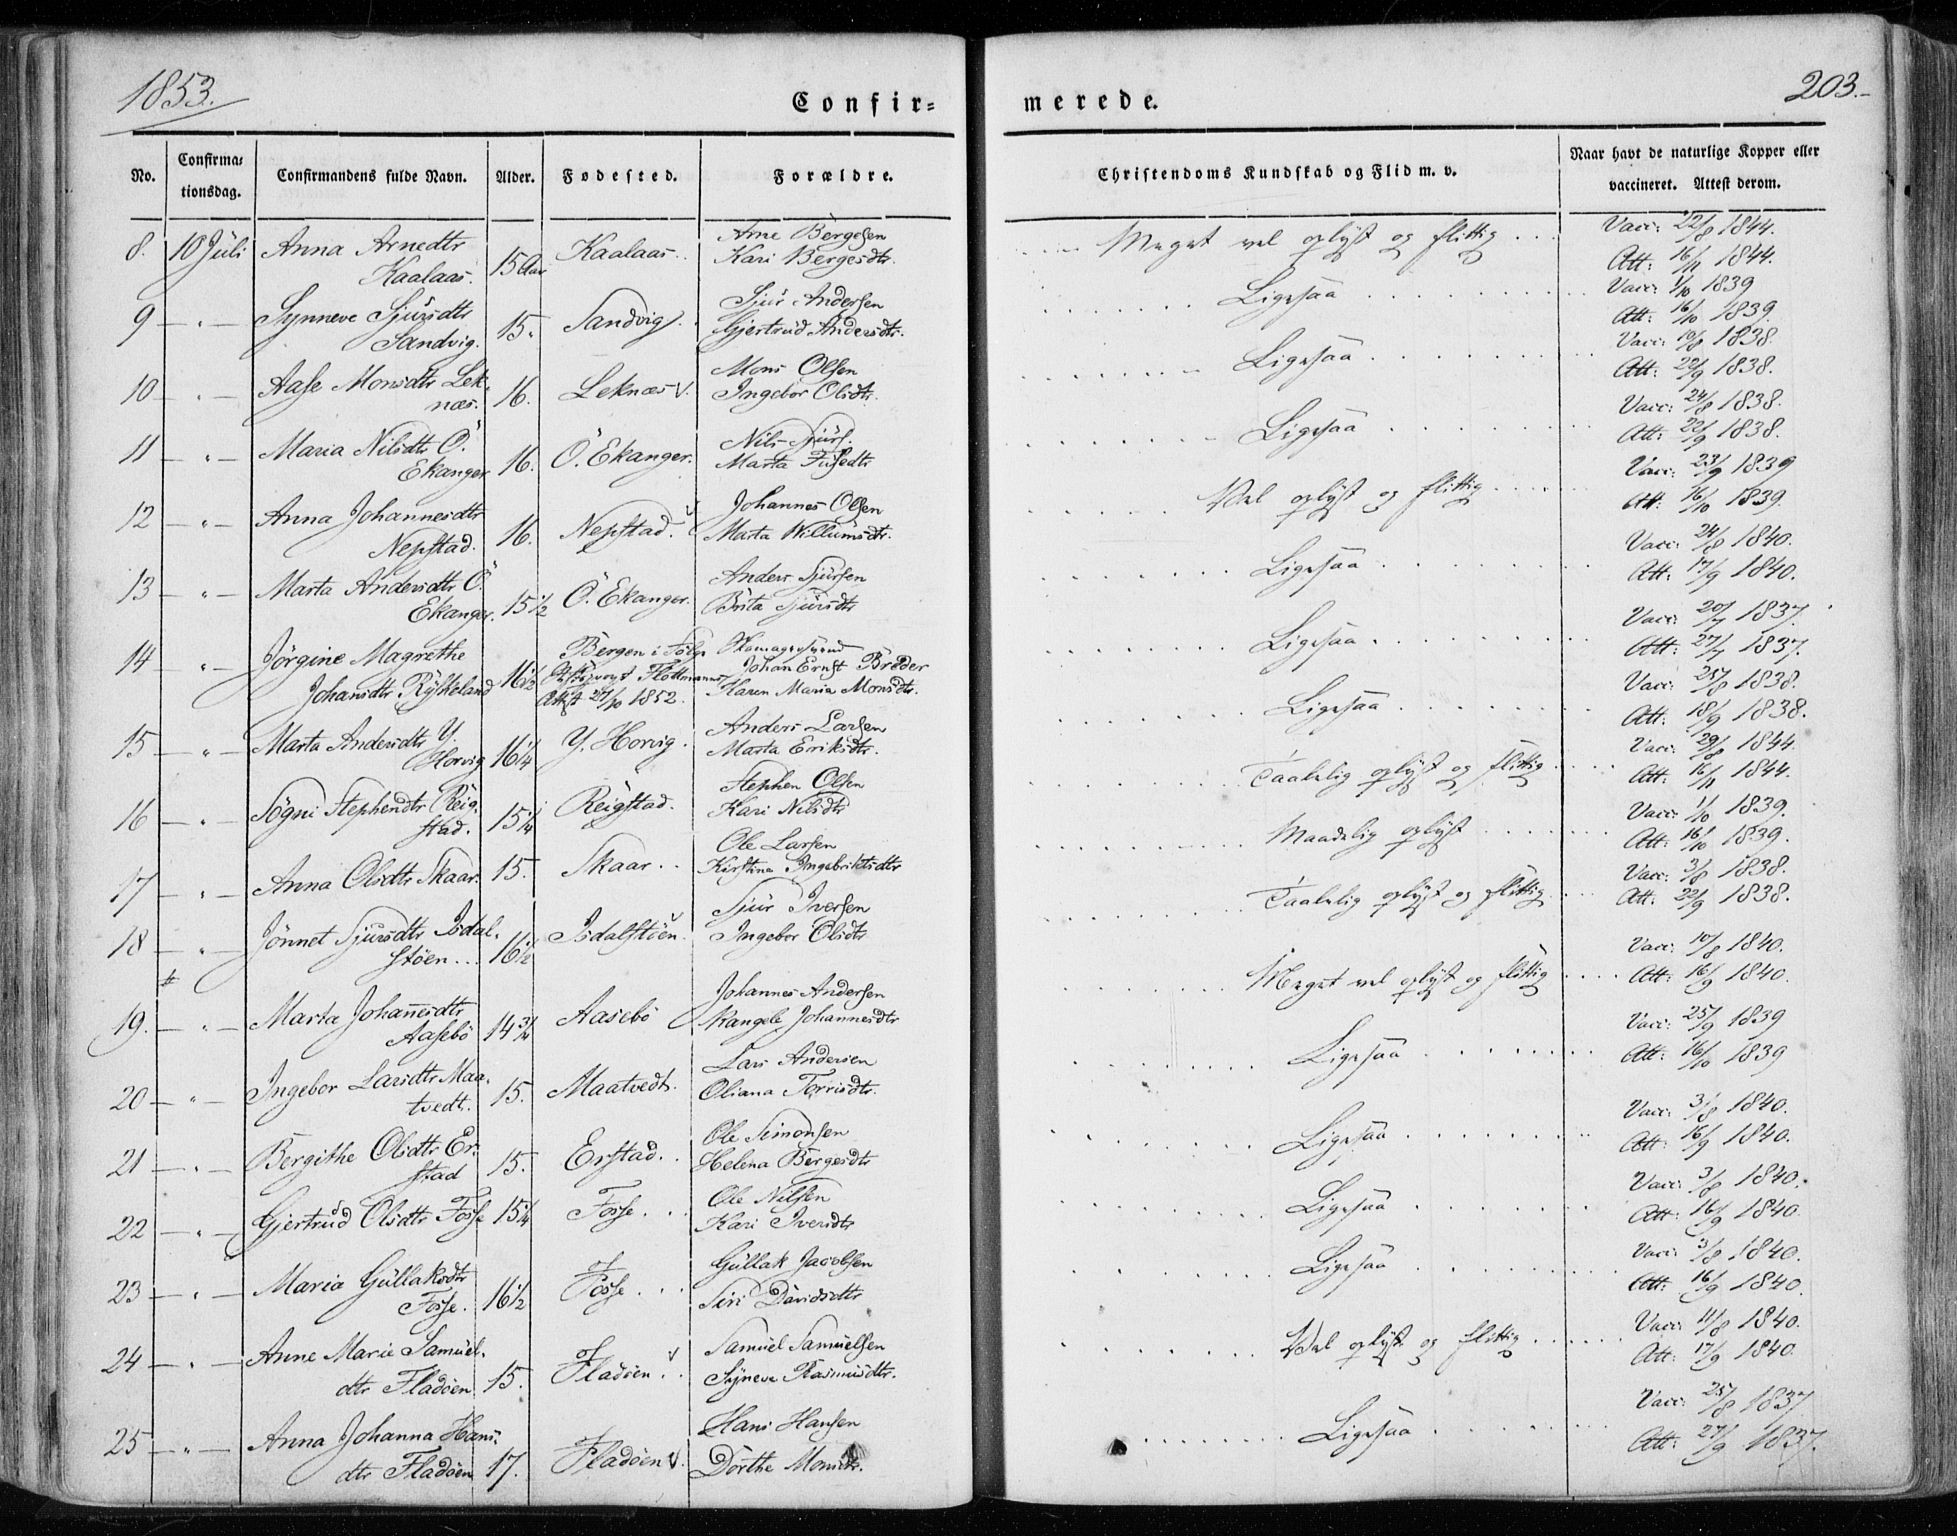 1853.
Confir=
merede.
203.-
No.
Confirma=
tionsdag.
Confirmandens fulde Navn.
Alder.
Fødested.
Forældre.
Christendoms Kundskab og Flid m. v.
Naar havt de naturlige Kopper eller
vaccineret. Attest derom.
8. 10 Juli Anna Arnedtr
Kaalaas. 15 Aar Kaalaas.
Arne Bergesen
Kari Bergesdtr.
Meget vel oplyst og flittig
Vacc: 22/8 1844.
Att: 16/11 1844.
9 — " — Synneve Sjursdtr
Sandvig. 15. Sandvig.
Sjur Andersen
Gjertrud Andersdtr.
Ligesaa
Vacc: 1/10 1839
Att: 16/10 1839.
10 — " — Aase Monsdtr Lek-
næs. 16. Leknæs v.
Mons Olsen
Ingebor Olsdtr.
Ligesaa
Vacc: 10/8 1838.
Att: 22/9 1838.
11 — " — Maria Nilsdtr Ö.
Ekanger 16. Ö. Ekanger.
Nils Sjurs.
Marta
Ligesaa
Vacc: 24/8 1838.
Att: 22/9 1838.
12 — " — Anna Johannesdtr
Nepstad. 16. Nepstad. v
Johannes Olsen
Marta Willumsdtr.
Vel oplyst og flittig
Vacc: 23/9 1839
Att: 16/10 1839.
13 — " — Marta Andersdtr Ö.
Ekanger. 15 1/2 Ö. Ekanger.
Anders Sjursen
Brita Sjursdtr
Ligesaa
Vacc: 24/8 1840.
Att: 17/9 1840.
14 — " — Jörgine Magrethe
Johansdtr Rylkeland 16 1/2
Bergen i Fölge
Attest 27/10 1852.
Johan Ernst Bröder
Karen Maria Monsdtr.
Ligesaa
Vacc: 20/7 1837.
Att: 27/7 1837.
15 — " — Marta Andersdtr Y.
Horvig 16 1/4 Y. Horvig.
Anders Larsen
Marta Eriksdtr.
Ligesaa
Vacc: 25/8 1838.
Att: 18/9 1838.
16 — " — Sögni Stephensdtr Reig-
stad. 15 1/4 Reigstad.
Stephen Olsen
Kari Nilsdtr
Taalelig oplyst og flittig
Vacc: 29/8 1844.
Att: 16/11 1844.
17 — " — Anna Olsdtr Skaar. 15. Skaar
Ole Larsen
Kirstina Ingebriktsdtr
Maadelig oplyst
Vacc: 1/10 1839.
Att: 16/10 1839.
18 — " — Jönnet Sjursdtr Isdal-
stöen 16 1/2 Isdalstöen.
Sjur Iversen
Ingebor Olsdtr
Taalelig oplyst og flittig
Vacc: 3/8 1838.
Att: 22/9 1838.
19. — " — Marta Johannesdtr
Aasebö 14 3/4 Aasebö
Johannes Andersen
Rangele Johannesdtr
Meget vel oplyst og flittig
Vacc: 10/8 1840.
Att: 16/9 1840.
20 — " — Ingebor Larsdtr Maa-
tvedt. 15. Maatvedt.
Lars Andersen
Oliana Terrisdtr.
Ligesaa
Vacc: 25/9 1839
Att: 16/10 1839
21 — " — Bergithe Olsdtr Er-
stad 15. Erstad.
Ole Simonsen
Helena Bergesdtr
Ligesaa
Vacc: 3/8 1840.
Att: 16/9 1840.
22 — " — Gjertrud Olsdtr Fosse 15 1/4 Fosse.
Ole Nilsen
Kari Iversdtr
Ligesaa
Vacc: 3/8 1840.
Att: 16/9 1840.
23 — " — Maria Gullaksdtr
Fosse. 16 1/2 Fosse.
Gullak Jacobsen
Siri Davidsdtr
Ligesaa
Vacc: 3/8 1840.
Att: 16/9 1840.
24 — " — Anne Marie Samuel-
dtr Fladöen 15. Fladöen. v
Samuel Samuelsen
Syneve Rasmusdtr.
Vel oplyst og flittig
Vacc: 11/8 1840.
Att: 17/9 1840.
25 — " — Anna Johanna Hans-
dtr Fladöen 17. Fladöen v.
Hans Hansen
Dorthe Monsdtr.
Ligesaa
Vacc: 25/8 1837
Att: 27/9 1837.